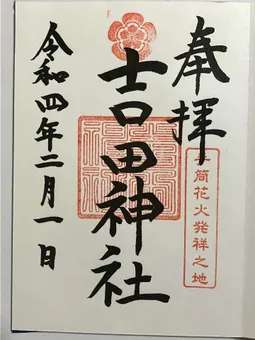 奉拝
手筒花火発祥之地
吉田神社
令和四年二月一日